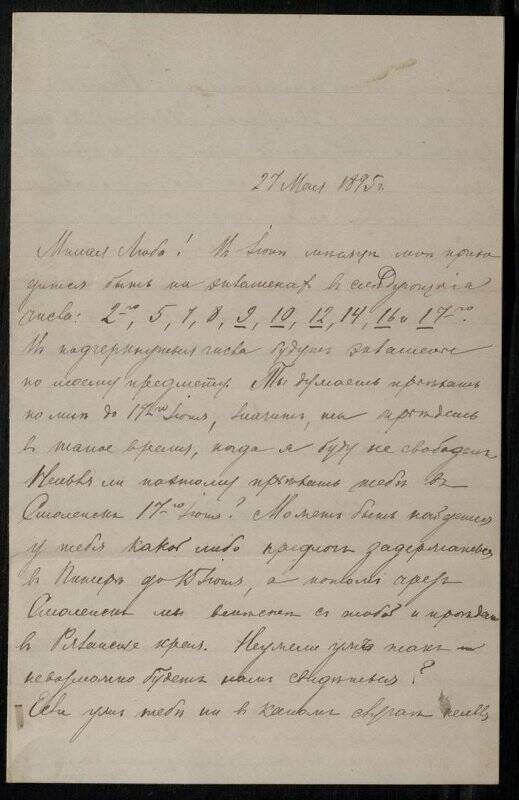 27 Мая 1895 г.
Милая Люба! Въ Іюнѣ мѣсяцѣ мнѣ прихо
дится быть на экзаменахъ въ слѣдующія
числа: 2-го, 5, 7, 8, 9, 10, 12, 14, 16 и 17-го.
Въ подчеркнутыя числа будутъ экзамены
по моему предмету. Ты думаешь пріѣхать
ко мнѣ до 12-го Іюня, значитъ, ты пріѣдешь
въ такое время, когда я буду не свободенъ
Нельзя ли поэтому пріѣхать тебѣ въ
Смоленскъ 17-го Іюня? Можетъ быть найдется
у тебя какой либо предлогъ задержаться
въ Питерѣ до 15 Іюня, а потомъ чрезъ
Смоленскъ мы съ тобой и
въ Рязанскіе края. Неужели ужъ такъ
невозможно будетъ намъ свидѣться?
Если ужъ тебѣ ни въ какомъ случаѣ нельзя